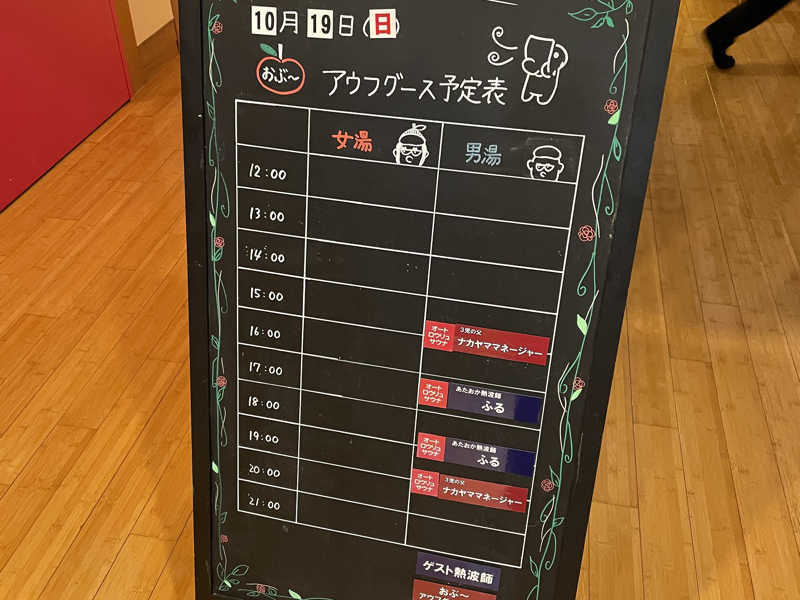 10月19日(日)
おぶ～
アウフグース予定表
女湯
男湯
12:00
13:00
14:00
15:00
16:00
オート
ロウリュ
サウナ
3児の父
ナカヤママネージャー
17:00
18:00
オート
ロウリュ
サウナ
あたおか熱波師
ふる
19:00
オート
ロウリュ
サウナ
あたおか熱波師
ふる
20:00
オート
ロウリュ
サウナ
3児の父
ナカヤママネージャー
21:00
ゲスト熱波師
おぶ～